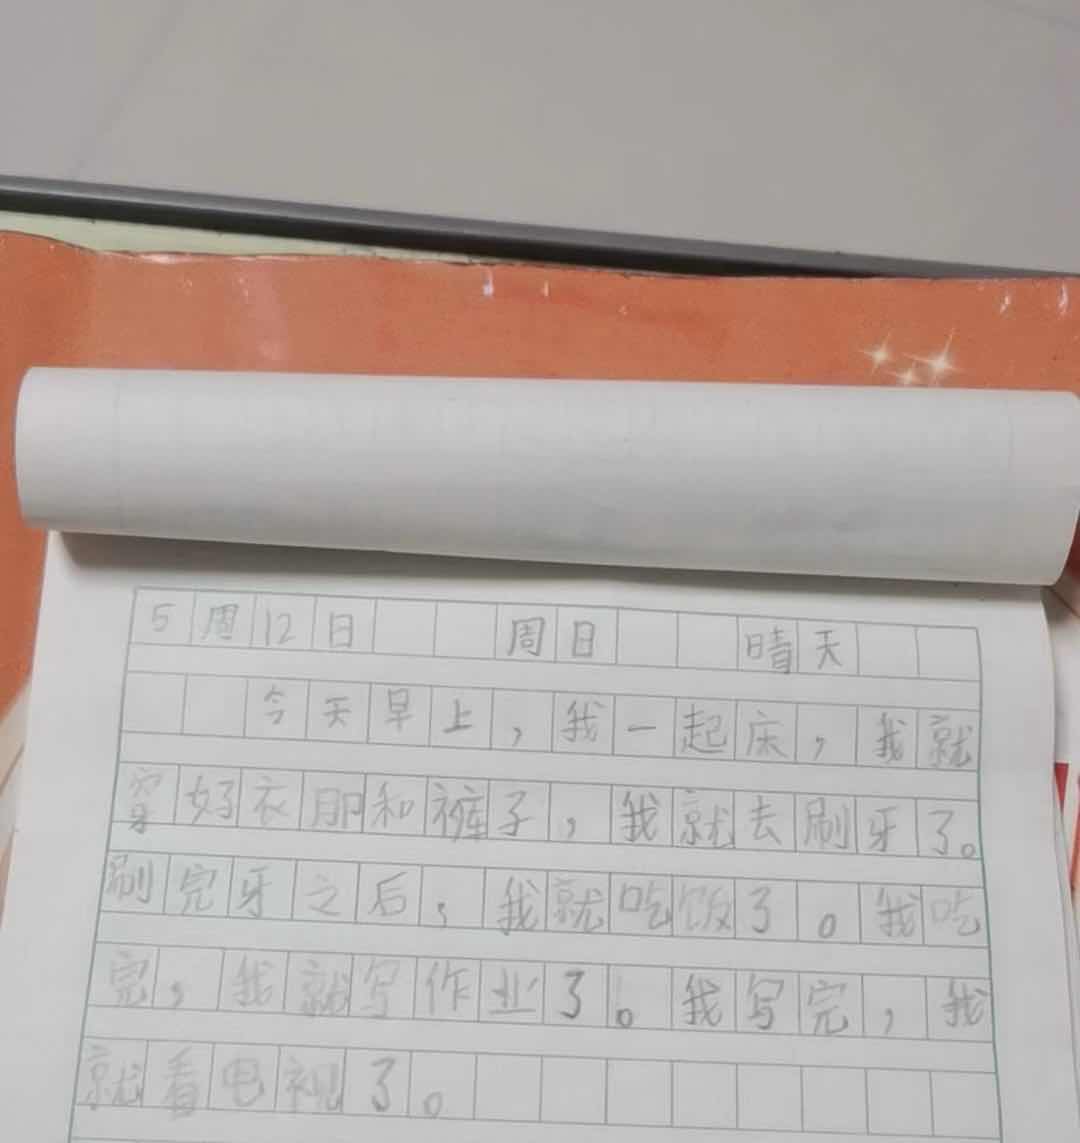 5周12日 周日 晴天
今天早上，我一起床，我就
穿好衣服和裤子，我就去刷牙了。
刷完牙之后，我就吃饭了。我吃
完，我就写作业了。我写完，我
就看电视了。